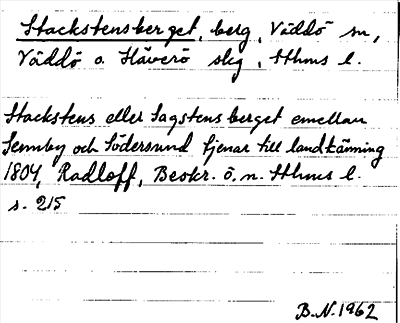 Stackstensberget, berg, Väddö sn,
Väddö o. Häverö skg, Sthms l.
Stackstens eller Sagstensberget emellan
Semmby och Södersund tjenar till landkänning
1804, Radloff, Beskr. ö. n. Sthms l.
s. 215
B.N. 1962